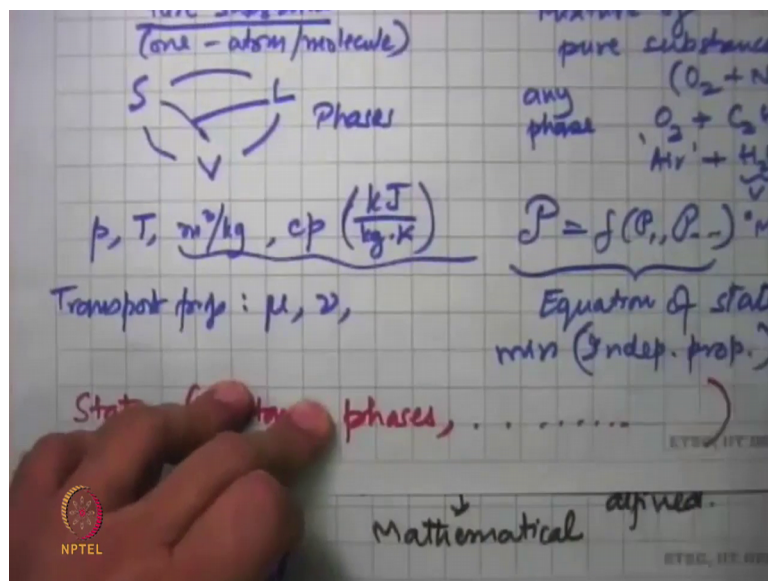 (one - atom/molecule)
S L Phases
V
p, T, m³/kg, cp (kJ/kg·K)
Transport : μ, ν,
mixture of
pure substance
(O₂ + N
any
phase
O₂ + C₂
'Air' + H₂
V
P = f(P₁, P₂ --)
Equation of stat
min (Indep. prop.)
State phases, . . . . . . . . . )
Mathematical defined.
NPTEL